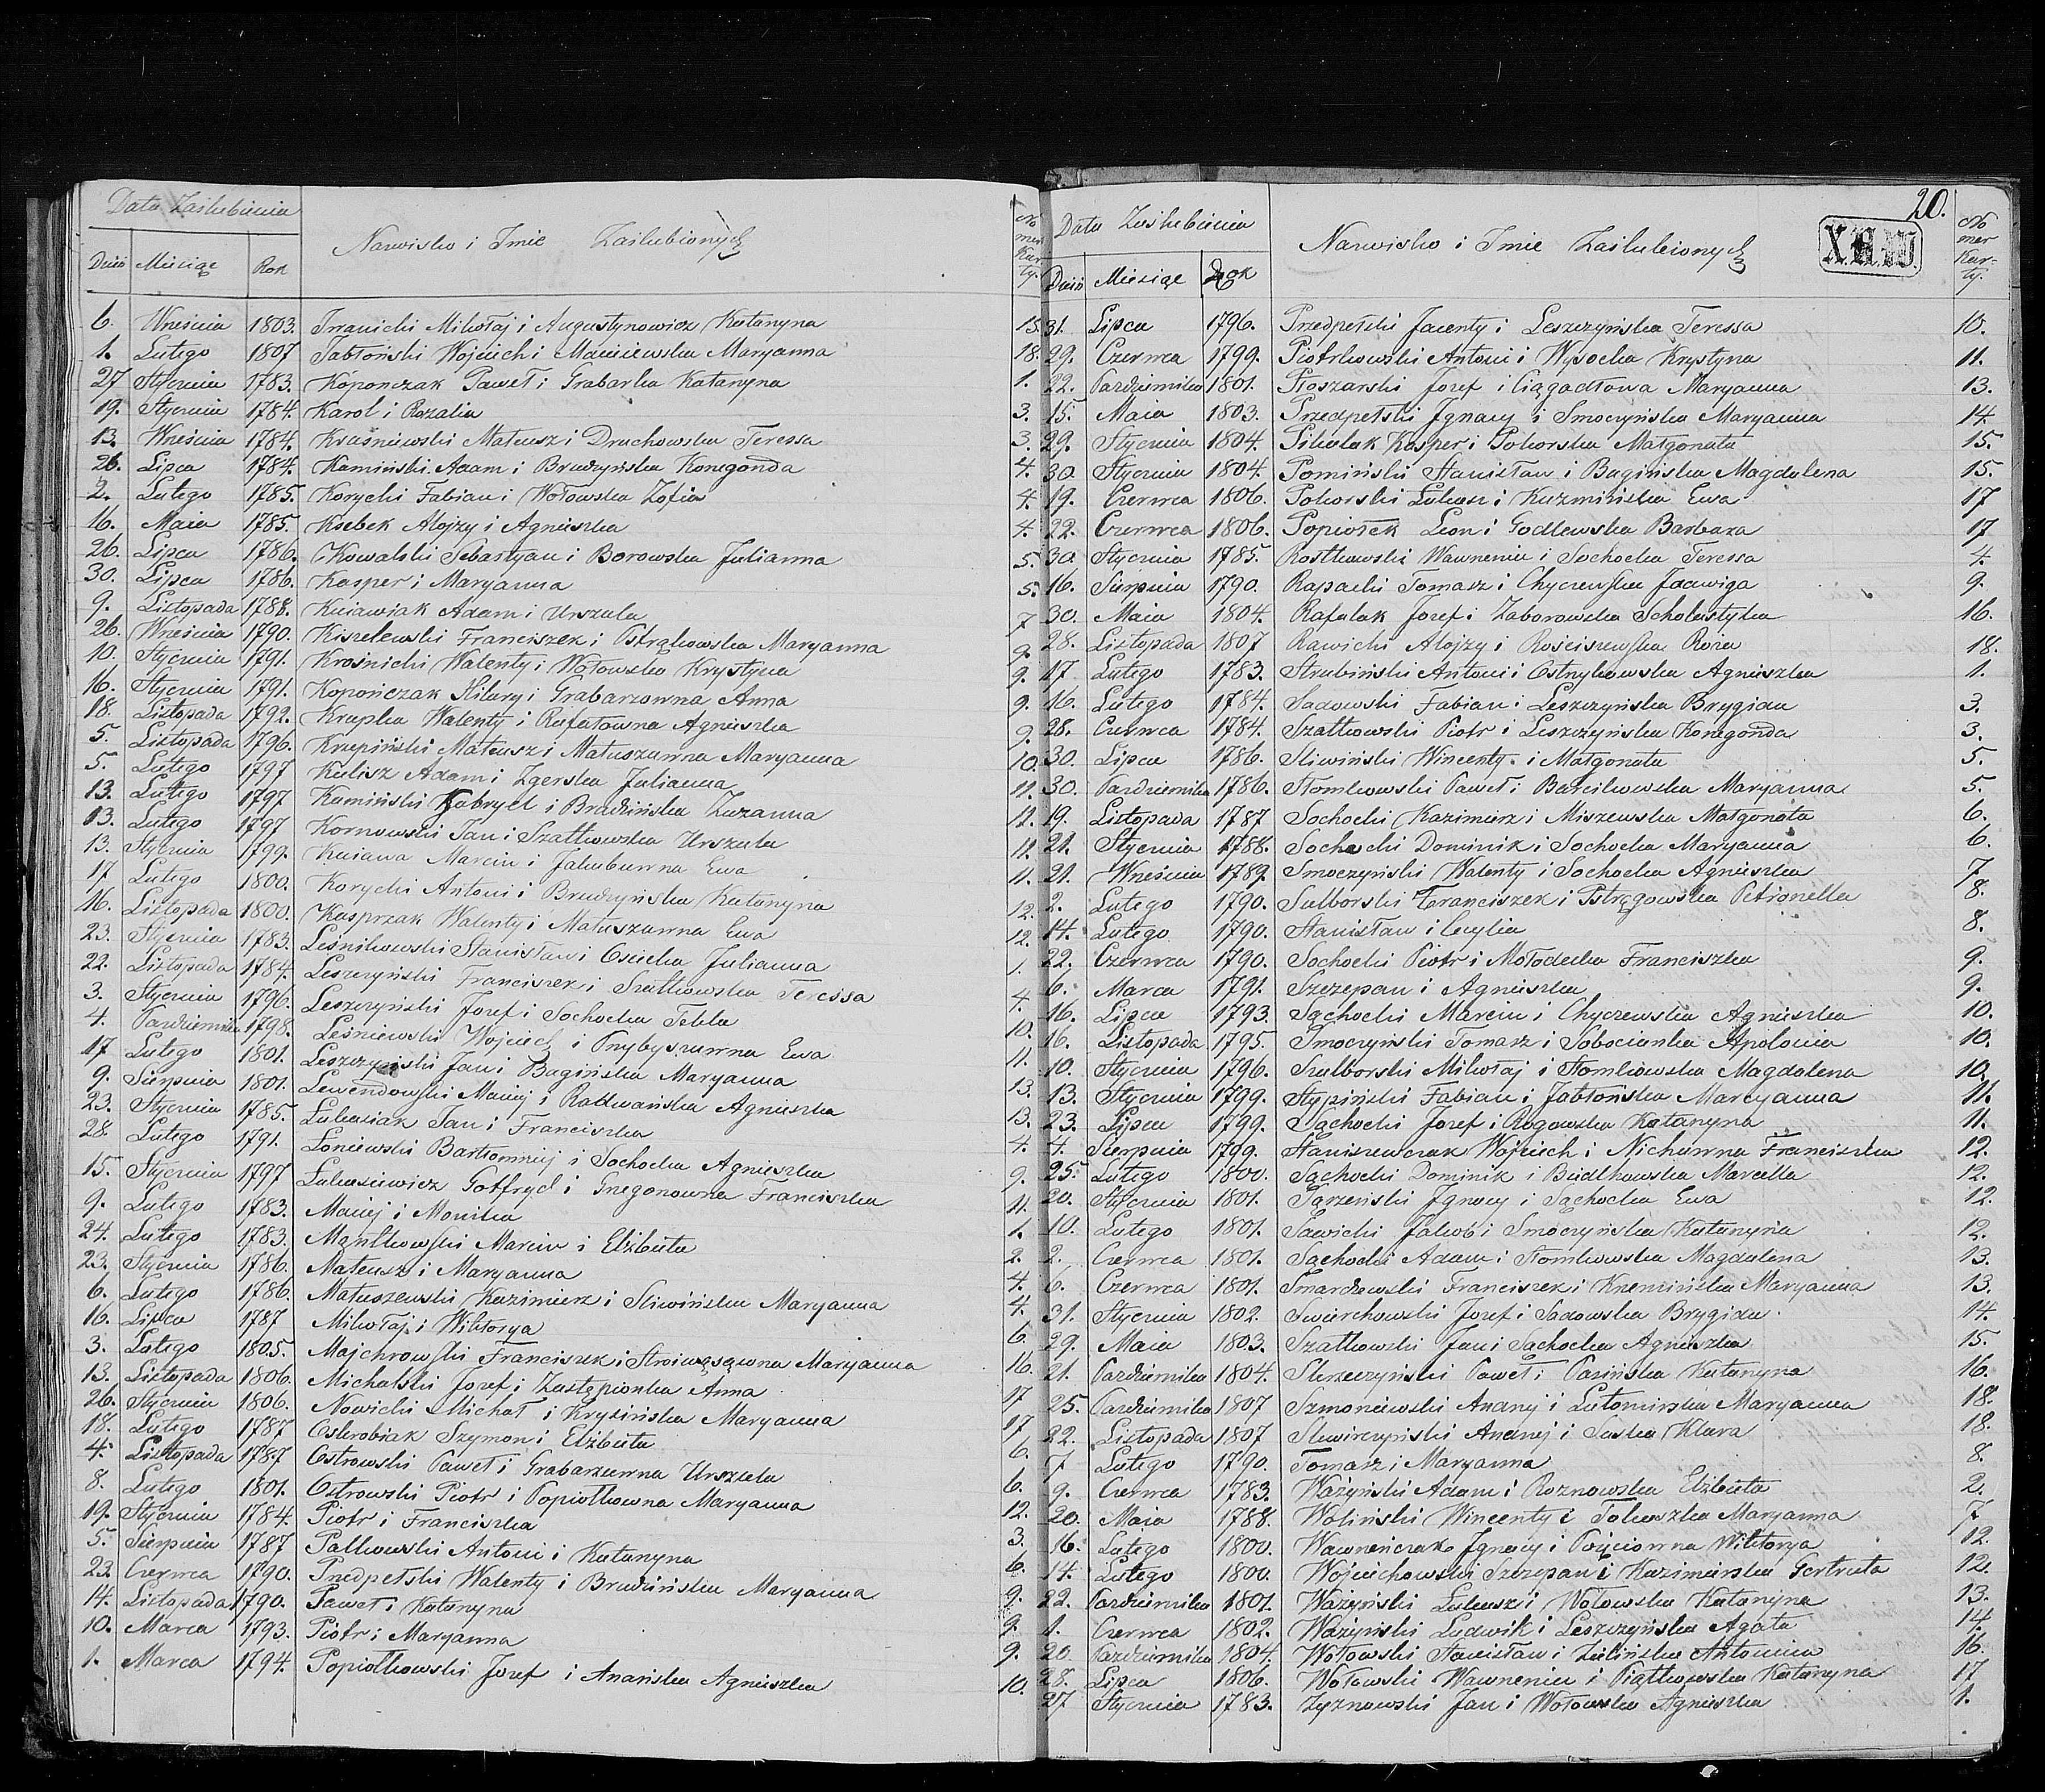 Data Zaślubienia
Nazwisko i Imie Zaślubionych
Nomer Karty.
Dzień Miesiąc Rok
6. Września 1803. Trzaniciki Mikołaj i Augustynowicz Katarzyna 15.
1. Lutego 1807 Jabłoński Wojciech i Maciejewska Maryanna 18.
27 Stycznia 1783. Kopończak Paweł i Grabarka Katarzyna 1.
19. Stycznia 1784. Karol i Rozalia 3.
13. Września 1784. Kraśniewski Mateusz i Drachowska Teressa 3.
26. Lipca 1784. Kamiński Adam i Brudzyńska Konegonda 4.
2. Lutego 1785. Korycki Fabian i Wołowska Zofia 4.
16. Maia 1785. Ksebek Alojzy i Agnieszka 4.
26. Lipca 1786. Kowalski Sebastyan i Borowska Julianna 5.
30. Lipca 1786. Kasper i Maryanna 5.
9. Listopada 1788. Kuiawiak Adam i Urszula 7
26. Września 1790. Kiszelewski Franciszek i Pstrąkowska Maryanna 9.
10. Stycznia 1791. Krośnicki Walenty i Wołowska Krystyna 9.
16. Stycznia 1791. Kopończak Hilary i Grabarzowna Anna 9.
18. Listopada 1792. Krupka Walenty i Rafałowna Agnieszka 9.
5. Listopada 1796. Krzepiński Mateusz i Matuszewna Maryanna 10.
5. Lutego 1797 Kulisz Adam i Zgerska Julianna 11.
13. Lutego 1797 Kamiński Gabryel i Brudzińska Zuzanna 11.
13. Lutego 1797 Kornowski Jan i Szatkowska Urszula 11.
13. Stycznia 1799. Kuiawa Marcin i Jakubówna Ewa 11.
17 Lutego 1800. Korycki Antoni i Brudzyńska Katarzyna 12.
16. Listopada 1800. Kasprzak Walenty i Matuszewna Ewa 12.
23. Stycznia 1783. Leśnikowski Stanisław i Osiecka Julianna 1.
22. Listopada 1784. Leszczyński Franciszek i Szatkowska Teressa 4.
3. Stycznia 1796. Leszczyński Jozef i Sochocka Tekla 10.
4. Pazdziernika 1798. Leśniewski Wojciech i Przybyszewna Ewa 11.
17 Lutego 1801. Leszczyński Jan i Bagińska Maryanna 13.
9. Sierpnia 1801. Lewendowski Maciej i Radwańska Agnieszka 13.
23. Stycznia 1785. Lukasiak Jan i Franciszka 4.
28. Lutego 1791. Loniewski Bartłomniej i Sochocka Agnieszka 9.
15. Stycznia 1797 Łukasiewicz Gotfryd i Grzegorzowna Franciszka 11.
9. Lutego 1783. Maciej i Monika 1.
24. Lutego 1783. Mańkowski Marcin i Elżbieta 2.
23. Stycznia 1786. Mateusz i Maryanna 4.
6. Lutego 1786. Matuszewski Kazimierz i Sliwińska Maryanna 4.
16. Lipca 1787 Mikołaj i Wiktorya 6.
3. Lutego 1805. Majchrowski Franciszek i Stroiwąsówna Maryanna 16.
13. Listopada 1806. Michalski Jozef i Zastępionka Anna 17
26. Stycznia 1806. Nowicki Michał i Krysińska Maryanna 17
18. Lutego 1787 Oskrobiak Szymon i Elżbieta 6.
4. Listopada 1787 Ostrowski Paweł i Grabarzewna Urszula 6.
8. Lutego 1801. Ostrowski Piotr i Popiołkowna Maryanna 12.
19. Stycznia 1784. Piotr i Franciszka 3.
5. Sierpnia 1787 Palkowski Antoni i Katarzyna 6.
23. Czerwca 1790. Przedpełski Walenty i Brudzińska Maryanna 9.
14. Listopada 1790. Paweł i Katarzyna 9.
10. Marca 1793. Piotr i Maryanna 9.
1. Marca 1794. Popiołkowski Jozef i Ananska Agnieszka 10.
20.
X.H.W.
Data Zaślubienia
Nazwisko i Imie Zaślubionych
Nomer Karty.
Dzień Miesiąc Rok
31. Lipca 1796. Przedpełski Jacenty i Leszczyńska Teressa 10.
29. Czerwca 1799. Piotrkowski Antoni i Wysocka Krystyna 11.
22. Pazdziernika 1801. Płoszarski Jozef i Ciągadłowa Maryanna 13.
15. Maia 1803. Przedpełski Jgnacy i Smoczyńska Maryanna 14.
29. Stycznia 1804. Pikulak Kasper i Pokorska Małgorzata 15.
30. Stycznia 1804. Pomiński Stanisław i Bagińska Magdalena 15.
19. Czerwca 1806. Pokorski Lukasz i Kuzmińska Ewa 17
22. Czerwca 1806. Popiołek Leon i Godlewska Barbara 17
30. Stycznia 1785. Rostkowski Wawrzeniec i Sochocka Teressa 4.
16. Sierpnia 1790. Rapacki Tomasz i Chyczewska Jadwiga 9.
30. Maia 1804. Rafalak Jozef i Zaborowska Scholastyka 16.
28. Listopada 1807 Rawicki Alojzy i Rościszewska Róża 18.
17 Lutego 1783. Strubiński Antoni i Ostrzykowska Agnieszka 1.
16. Lutego 1784. Sadowski Fabian i Leszczyńska Brygida 3.
28. Czerwca 1784. Szatkowski Piotr i Leszczyńska Konegonda 3.
30. Lipca 1786. Sliwiński Wincenty i Małgorzata 5.
30. Pazdziernika 1786. Słomkowski Paweł i Barcikowska Maryanna 5.
19. Listopada 1787 Sochocki Kazimierz i Miszewska Małgorzata 6.
21. Stycznia 1788. Sochocki Dominik i Sochocka Maryanna 6.
21. Września 1789. Smoczyński Walenty i Sochocka Agnieszka 7
2. Lutego 1790. Sulborski Franciszek i Pstrągowska Petronella 8.
14. Lutego 1790. Stanisław i Cecylia 8.
22. Czerwca 1790. Sochocki Piotr i Mołodecka Franciszka 9.
6. Marca 1791. Szczepan i Agnieszka 9.
16. Lipca 1793. Sąchocki Marcin i Chyczewska Agnieszka 10.
16. Listopada 1795. Smoczyński Tomasz i Sobocianka Apolonia 10.
10. Stycznia 1796. Szulborski Mikołaj i Słomkowska Magdalena 10.
13. Stycznia 1799. Stypiński Fabian i Jabłońska Marcyanna 11.
23. Lipca 1799. Sąchocki Jozef i Rogowska Katarzyna 11.
4. Sierpnia 1799. Staniszewczak Wojciech i Nichewna Franciszka 12.
25. Lutego 1800. Sąchocki Dominik i Budkowska Marcella 12.
20. Stycznia 1801. Sarzeński Jgnacy i Sąchocka Ewa 12.
10. Lutego 1801. Sawicki Jakob i Smoczyńska Katarzyna 12.
2. Czerwca 1801. Sąchocki Adam i Słomkowska Magdalena 13.
6. Czerwca 1801. Smardzewski Franciszek i Krzemińska Maryanna 13.
31. Stycznia 1802. Swierchowski Jozef i Sadowska Brygida 14.
29. Maia 1803. Szatkowski Jan i Sąchocka Agnieszka 15.
21. Pazdziernika 1804. Skrzeczyński Paweł i Pazińska Katarzyna 16.
25. Pazdziernika 1807 Szmoniewski Andrzej i Lutomirska Maryanna 18.
22. Listopada 1807 Skwirczyński Andrzej i Saska Klara 18.
7 Lutego 1790. Tomasz i Maryanna 8.
9. Czerwca 1783. Ważyński Adam i Roznowska Elżbieta 2.
20. Maia 1788. Woliński Wincenty i Tokarska Maryanna 7
16. Lutego 1800. Wawrzeńczak Jgnacy i Wójciowna Wiktorya 12.
14. Lutego 1800. Wojciechowski Szczepan i Kazimierska Gertruta 12.
22. Pazdziernika 1801. Ważyński Lukasz i Wołowska Katarzyna 13.
1. Czerwca 1802. Ważyński Ludwik i Leszczyńska Agata 14.
20. Pazdziernika 1804. Wołowski Stanisław i Zielińska Antonina 16.
28. Lipca 1806. Wołowski Wawrzeniec i Piątkowska Katarzyna 17
27 Stycznia 1783. Zyznowski Jan i Wołowska Agnieszka 1.